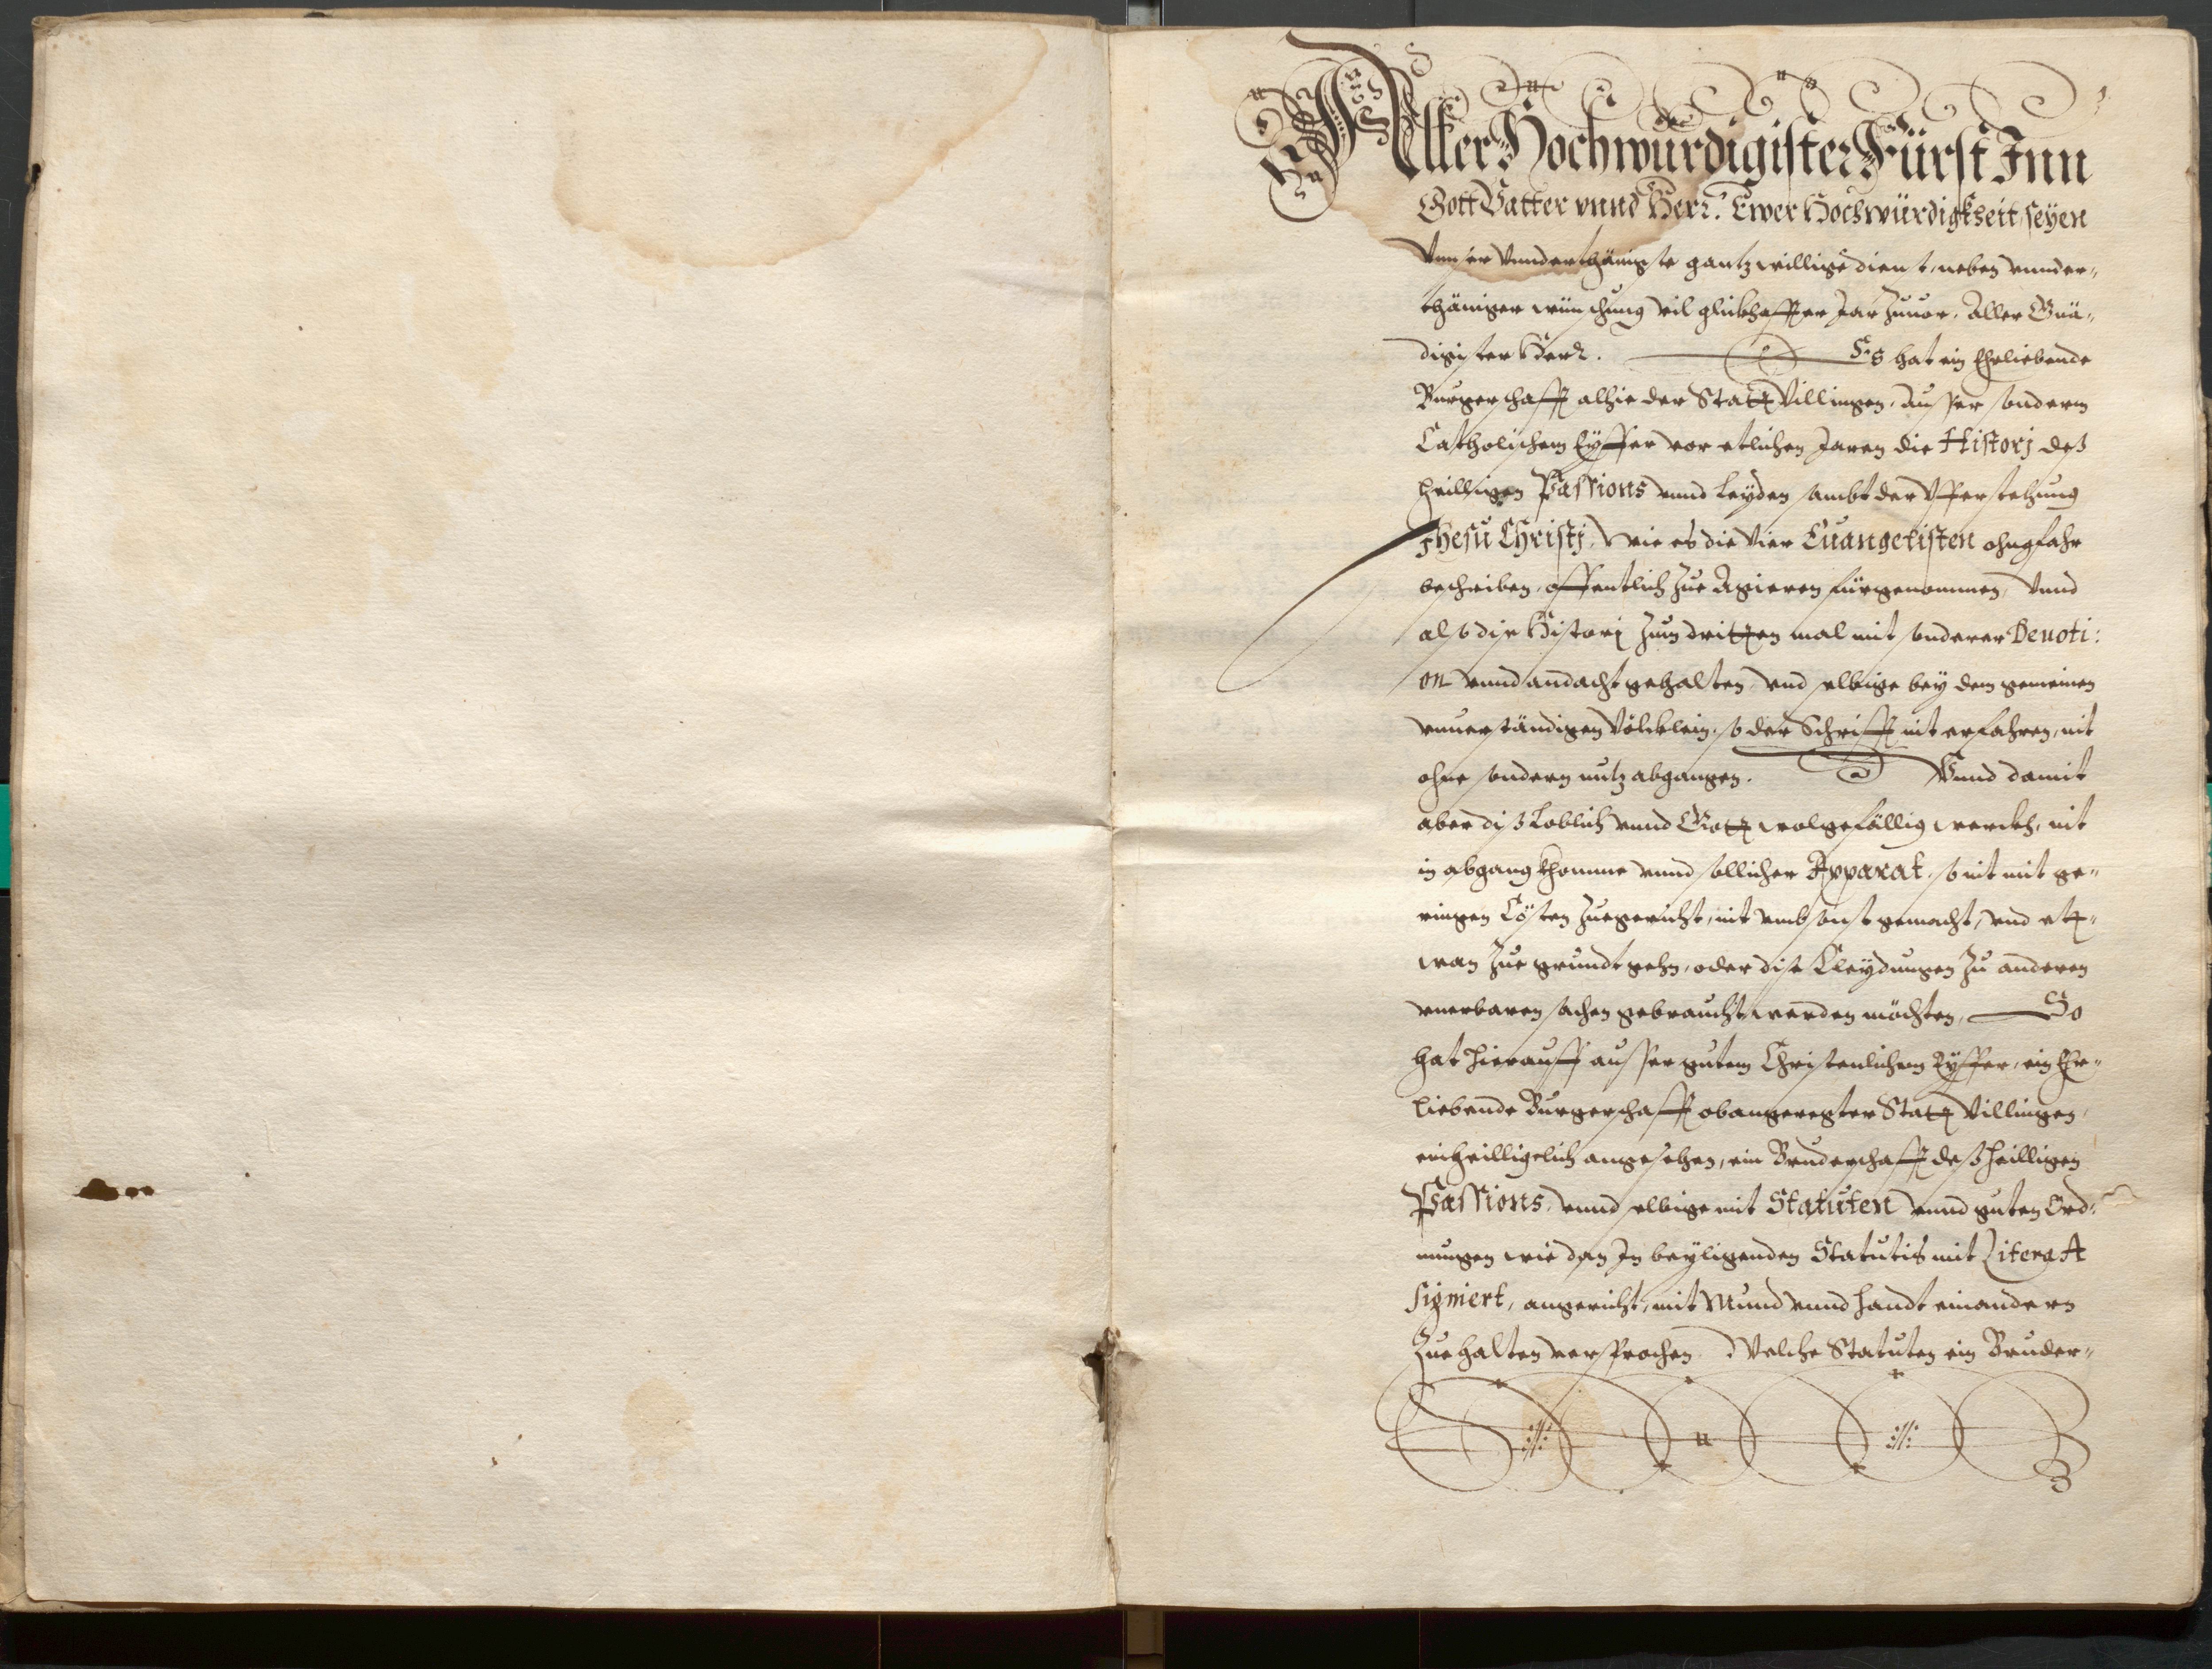 Aller Hochwürdigister Fürst Inn
Gott Vatter vnnd Herr. Ewer Hochwürdigkheit seyen
Vnnser Vnnderthänigste gantz willige dienst, neben vnnder„
thäniger wünschung vil glückhaffter Jar zuuor. Aller Gnä„
digister Herr. Es hat ein Ehrliebende
Burgerschafft alhie der Statt Villingen, ausser sonderm
Catholischem Eyffer vor etlichen Jaren die Historj deß
heilligen Passions vnnd Leyden sambt der Vfferstehung
Jhesu Christj, wie es die vier Euangelisten ohngfahr
beschreiben, offentlich zue Agieren fürgenommen, Vnnd
also die Histori zum dritten mal mit sonderer Deuoti:
on vnnd andacht gehalten, vnd selbige bey dem gemeinen
vnuerständigen Völcklein, so der Schrifft nit erfahren, nit
ohne sondern nutz abgangen. Vnnd damit
aber diß Loblich vnnd Gott wolgefällig werckh, nit
in abgang khomme vnnd sollicher Apparat, so nit mit ge„
ringen Cösten zuegericht, nit vmbsonst gemacht, vnd ett„
wan zue grundt gehn, oder dise Kleydungen zu anderen
vnerbaren sachen gebraucht werden möchten, So
hat hierauff ausser gutem Christenlichem Eyffer, ein Ehr„
liebende Burgerschafft obangeregter Statt Villingen,
einheilligelich angesehen, ein Bruderschafft deß heilligen
Passions, vnnd selbige mit Statuten vnnd guten Ord:
nungen wie dan Jn beyligenden Statutis mit Litera A
signiert, angericht, mit Mund vnnd handt einandern
Zue halten versprochen. Welche Statuten ein Bruder„